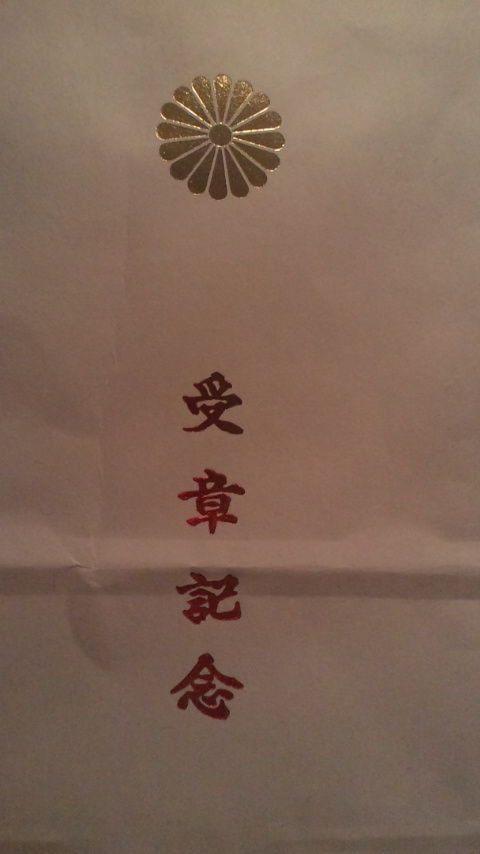 受章記念